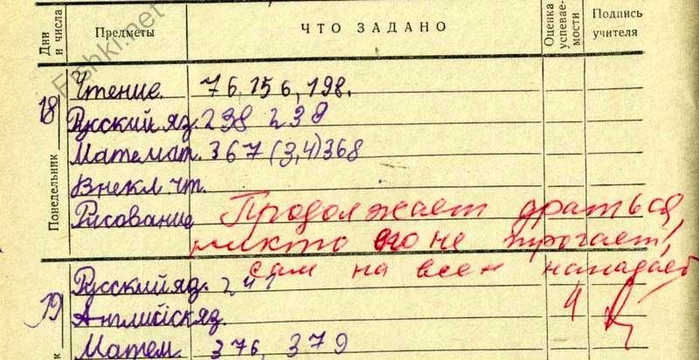 Дни и числа Предметы ЧТО ЗАДАНО Оценка успевае-мости Подпись учителя
Fishki.net
Понедельник
18 Чтение 76. 156, 198.
Русский яз. 238 239
Математ. 367 (3,4) 368
Внекл. чт.
Рисование Продолжает драться,
никто его не трогает,
сам на всех нападает
19 Русский яз. 241
Английск яз. 4
Матем. 376, 379